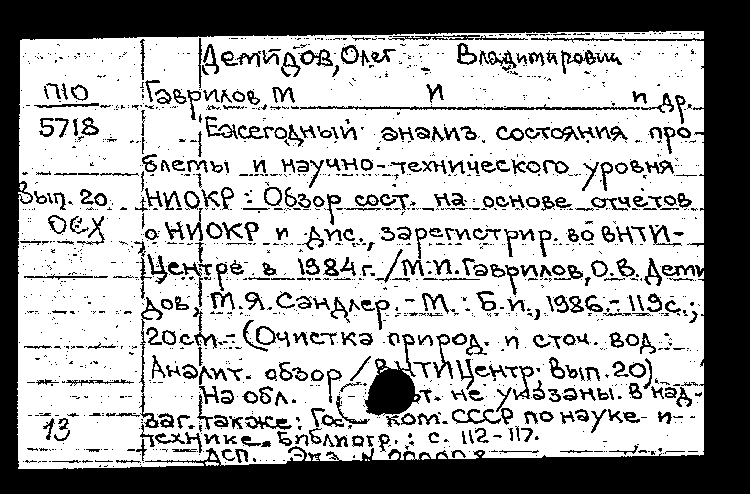 Демидов, Олег Владимирович
П10 Гаврилов М И и др.
5718 Ежегодный анализ состояния про-
блемы и научно-технического уровня
Вып. 20 НИОКР : Обзор сост. на основе отчетов
ОСХ о НИОКР и дис., зарегистрир. во ВНТИ-
Центре в 1984 г. / М.И. Гаврилов, О.В. Деми
дов, М.Я. Сандлер. - М. : Б.и., 1986. - 119 с.;
20 см. - (Очистка природ. и сточ. вод :
Аналит. обзор / ВНТИЦентр; Вып. 20).
На обл. т. не указаны. В над-
заг. также: Гос. ком. СССР по науке и
13 технике. Библиогр. : с. 112-117.
ДСП. Экз. N